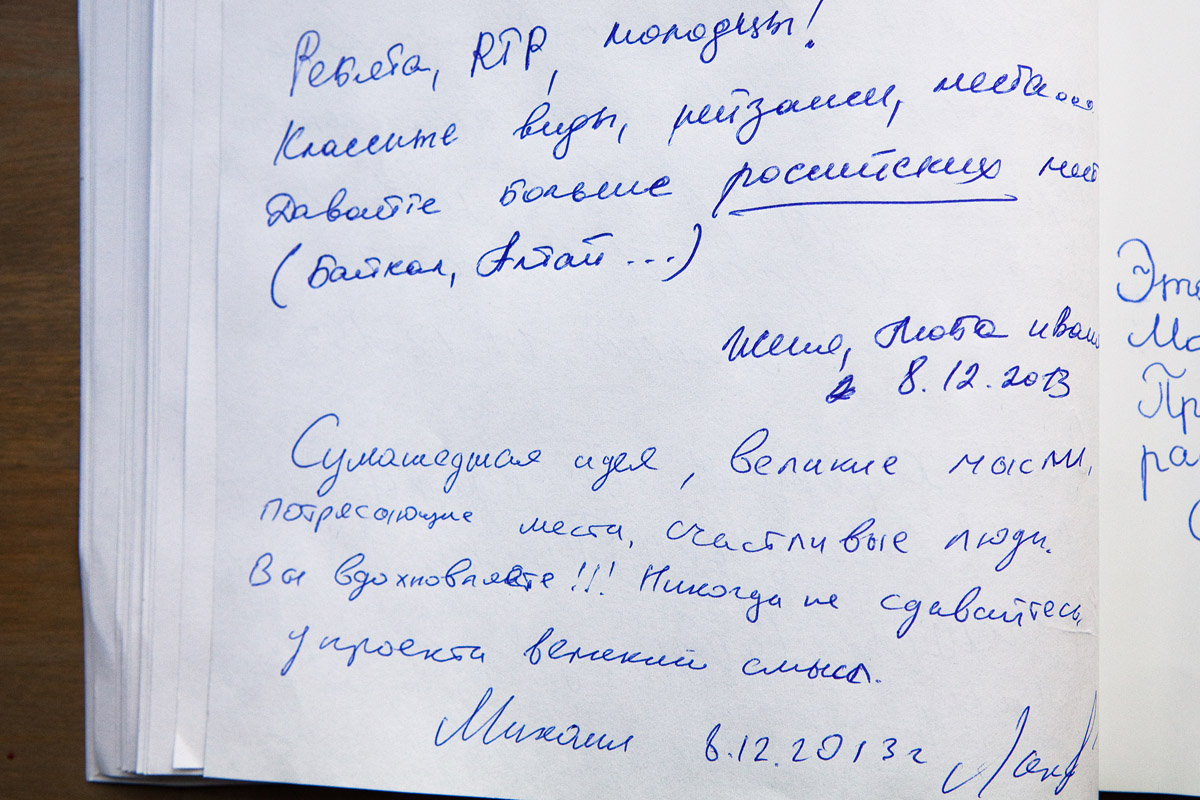 Ребята, RTP, молодцы!
Классные виды, пейзажи, места...
Давайте больше российских мест
(Байкал, Алтай ...)
Женя, Люба и Иван
8.12.2013
Сумашедшая идея, великие мысли,
потрясающие места, счастливые люди.
Вы вдохновляете!!! Никогда не сдавайтесь,
у проекта великий смысл.
Михаил 8.12.2013 г
Это
Мо
Пр
ра